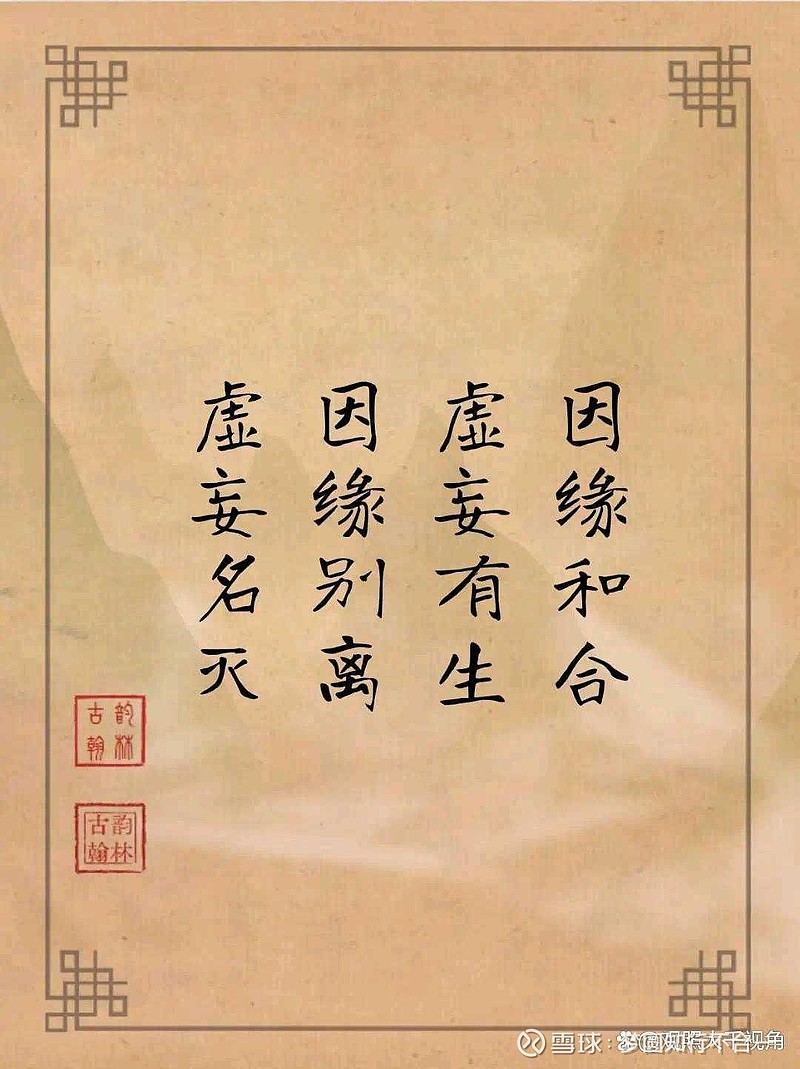 因缘和合
虚妄有生
因缘别离
虚妄名灭
韵林
古翰
韵林
古翰
雪球: